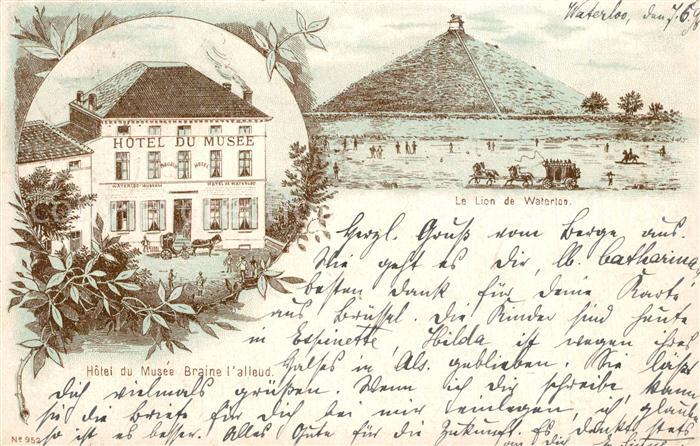 Waterloo, den 7.6.9
HÔTEL DU MUSÉE
HÔTEL
WATERLOO-MUSEUM HOTEL DE WATERLOO
Le Lion de Waterloo.
Herzl. Gruß vom Berge aus.
Wie geht es Dir, lb. Catharina,
besten Dank für Deine Karte
aus Brüssel. Die Kinder sind heute
in Espinette, Hilda ist wegen ihres
Halses in Als. geblieben. Sie lässt
Dich vielmals grüßen. Wenn ich Dir schreibe kann
sie die Briefe für Dich bei mir einlegen, ich glaube
so ist es besser. Alles Gute für die Zukunft. Es denkt stets
an Die
Hôtel du Musée Braine l'alleud.
No 952